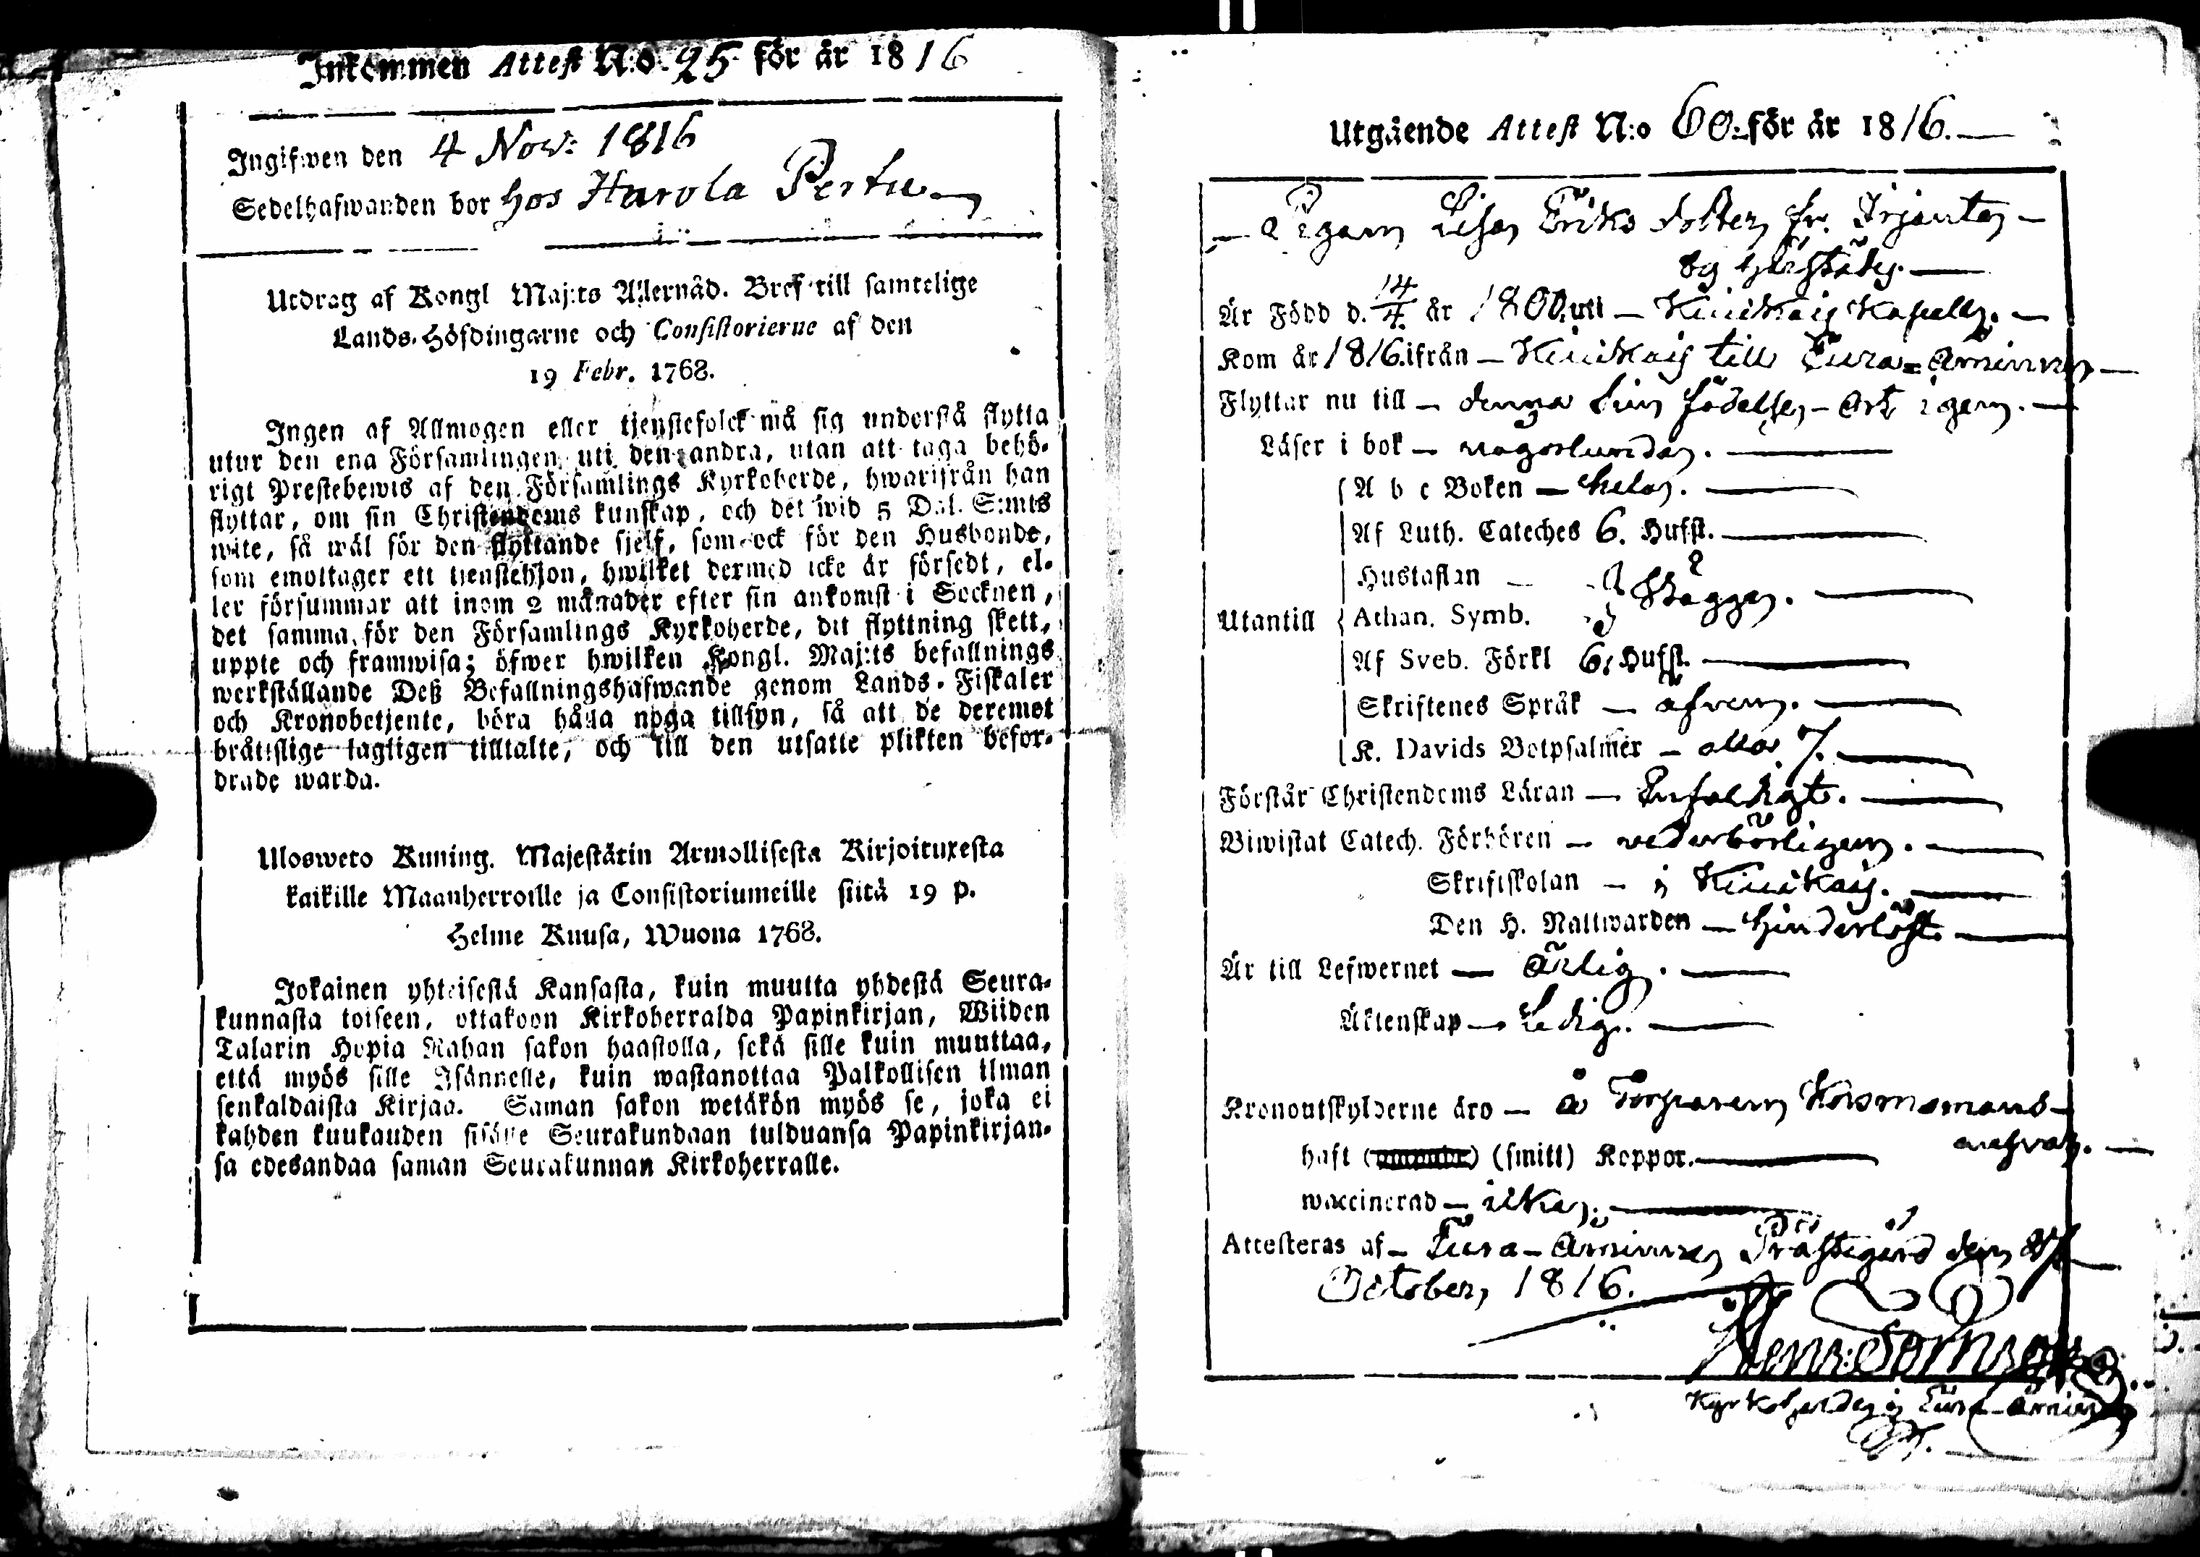 Inkommen Attest N:o 25 för år 1816
Ingifwen den 4 Nov: 1816
Sedelhafwanden bor hos Harola Pertu
Utdrag af Kongl Maj:ts Allernåd. Bref till samtelige
Lands-Höfdingarne och Consistorierne af den
19 Febr. 1768.
Ingen af Allmogen eller tjenstefolck må sig understå flytta
utur den ena Församlingen uti den andra, utan att taga behö-
rigt Prestebewis af den Församlings Kyrkoherde, hwarifrån han
flyttar, om sin Christendoms kunskap, och det wid 5 Dal. S:mts
wite, så wäl för den flyttande sjelf, som ock för den Husbonde,
som emottager ett tienstehjon, hwilket dermed icke är försedt, el-
ler försummar att inom 2 månader efter sin ankomst i Socknen,
det samma för den Församlings Kyrkoherde, dit flyttning skett,
uppte och framwisa; öfwer hwilken Kongl. Maj:ts befallnings
werkställande Deß Befallningshafwande genom Lands-Fiskaler
och Kronobetjente, böra hålla noga tillsyn, så att de deremot
bråttslige lagligen tilltalte, och till den utsatte plikten befor-
drade warda.
Ulosweto Kuning. Majestätin Armollisesta Kirjoituxesta
kaikille Maanherroille ja Consistoriumeille siitä 19 p.
Helme Kuusa, Wuona 1768.
Jokainen yhteisestä Kansasta, kuin muutta yhdestä Seura-
kunnasta toiseen, ottakoon Kirkoherralda Papinkirjan, Wiiden
Talarin Hopia Rahan sakon haastolla, sekä sille kuin muuttaa,
että myös sille Isännelle, kuin wastanottaa Palkollisen ilman
senkaldaista Kirjaa. Saman sakon wetäkön myös se, joka ei
kahden kuukauden sisälle Seurakundaan tulduansa Papinkirjan-
sa edesandaa saman Seurakunnan Kirkoherralle.
Utgående Attest N:o 60 för år 1816.
Pigan Lisa Eriks dotter fr.
Är Född d. 14/4 år 1800 uti Kiukais Kapell.
Kom år 1816 ifrån Kiukais till Eura-Åminne
Flyttar nu till denna sin födelse-Ort igen.
Läser i bok någorlunda.
A b c Boken hela.
Af Luth. Cateches 6. Hufst.
Hustaflan
Utantill Athan. Symb. } Bägge.
Af Sveb. Förkl 6. Hufst.
Skriftenes Språk äfven.
K. Davids Botpsalmer alla 7.
Förstår Christendoms Läran Enfaldigt.
Biwistat Catech. Förhören vederbörligen.
Skriftskolan i Kiukais.
Den H. Nattwarden hinderlöst.
Är till Lefwernet ärlig.
Äktenskap Ledig.
Kronoutskylderne äro å Torparen
ansvar.
haft (smitt) Koppor.
waccinerad icke.
Attesteras af Eura-Åminne Prästegård den 27
October 1816.
Kyrkoherde i Eura Åminne